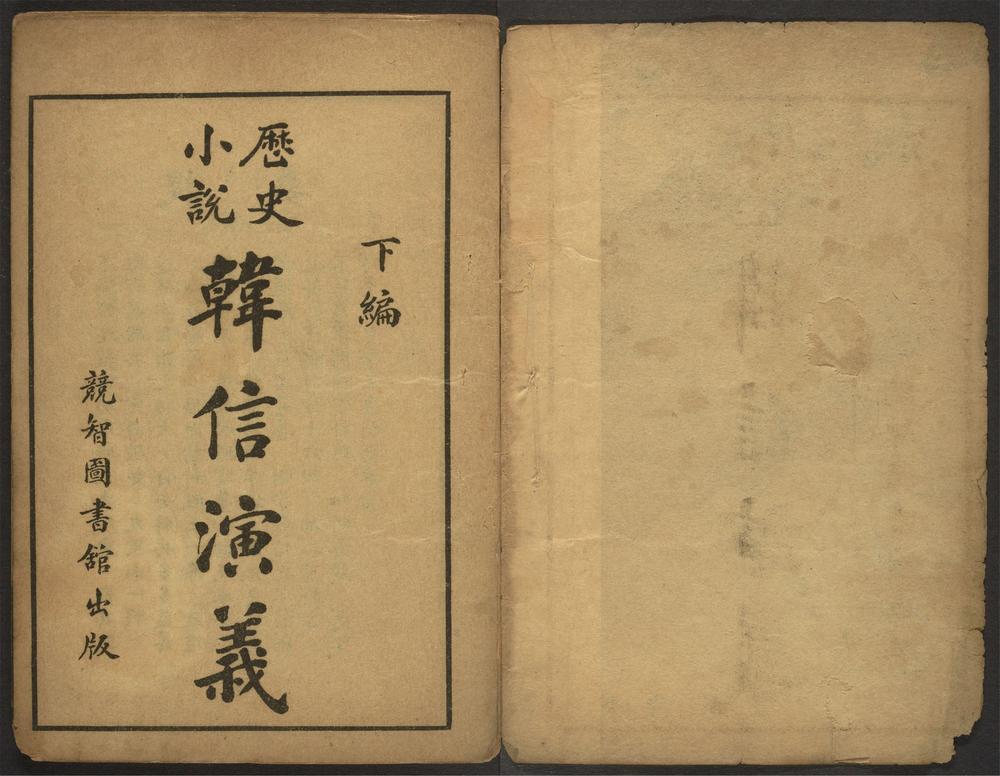 下編
歷史
小說
韓信演義
競智圖書館出版